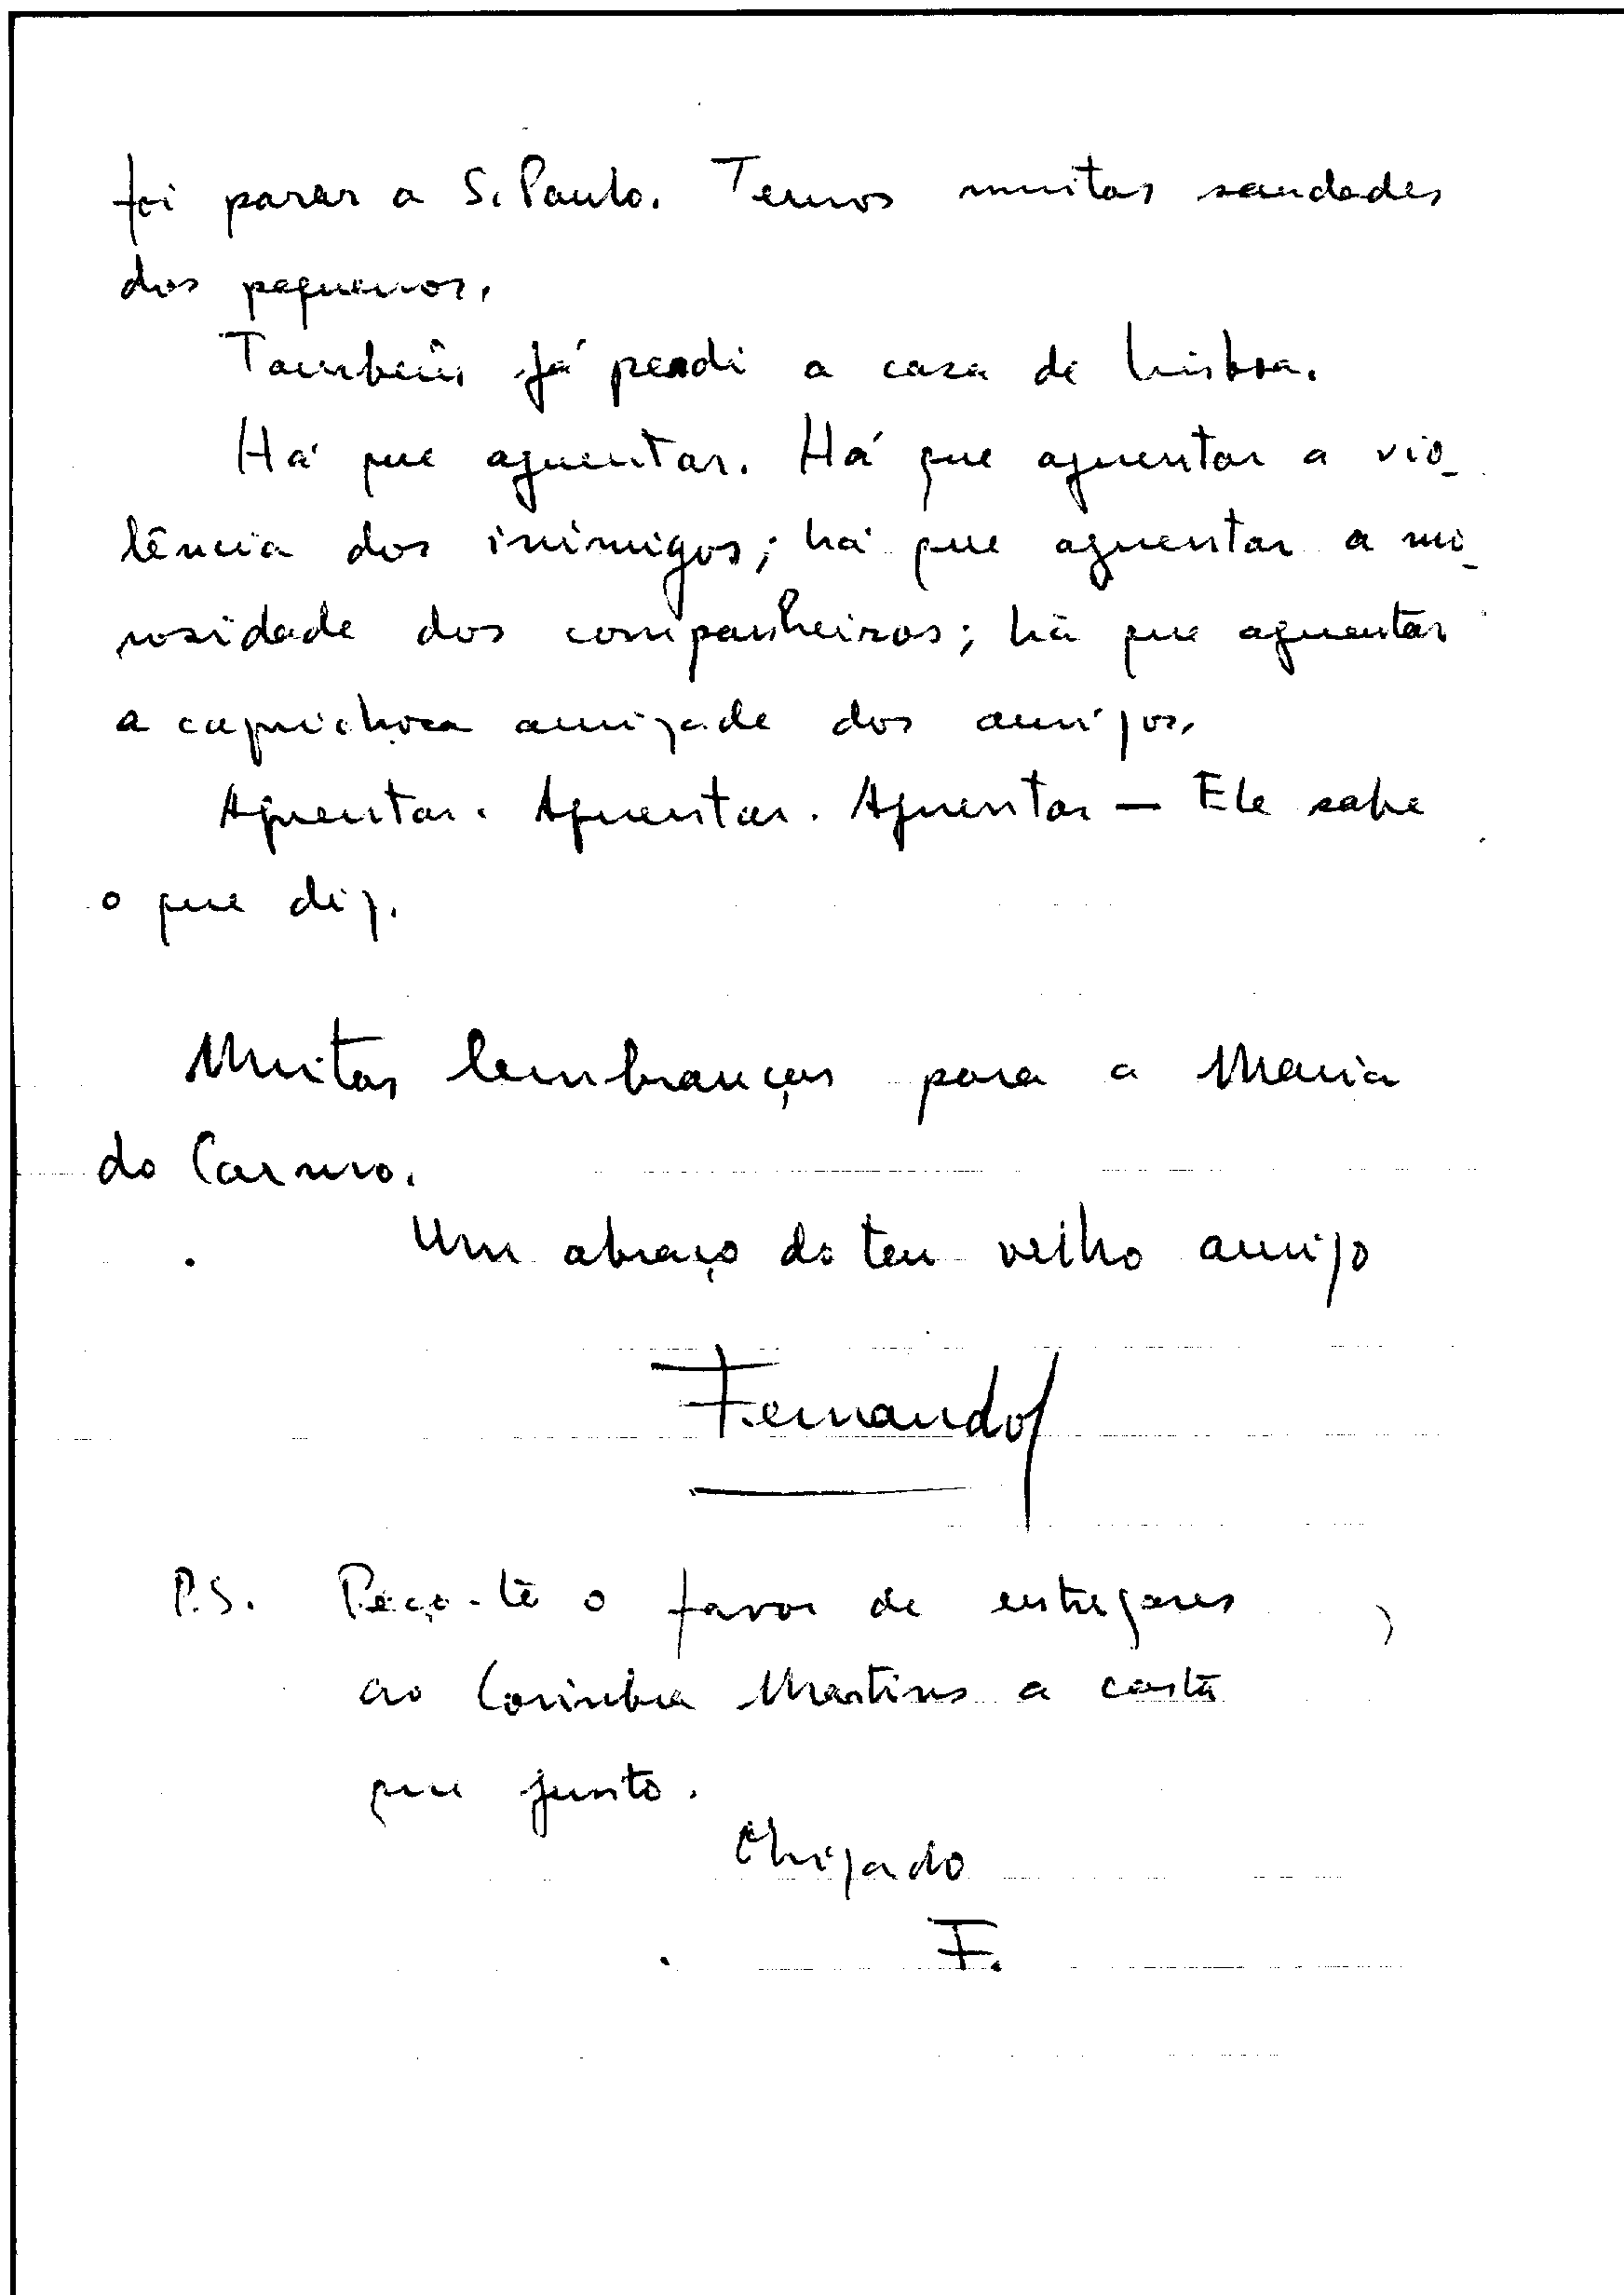 foi parar a S. Paulo. Temos muitas saudades
dos pequenos.
Também já perdi a casa de Lisboa.
Há que aguentar. Há que aguentar a vio-
lência dos inimigos; há que aguentar a mi-
nosidade dos companheiros; há que aguentar
a caprichosa amizade dos amigos.
Aguentar. Aguentar. Aguentar — Ele sabe
o que diz.
Muitas lembranças para a Maria
do Carmo.
Um abraço do teu velho amigo
Fernando
P.S. Peço-te o favor de entregares
ao Coimbra Martins a carta
que junto.
Obrigado
F.